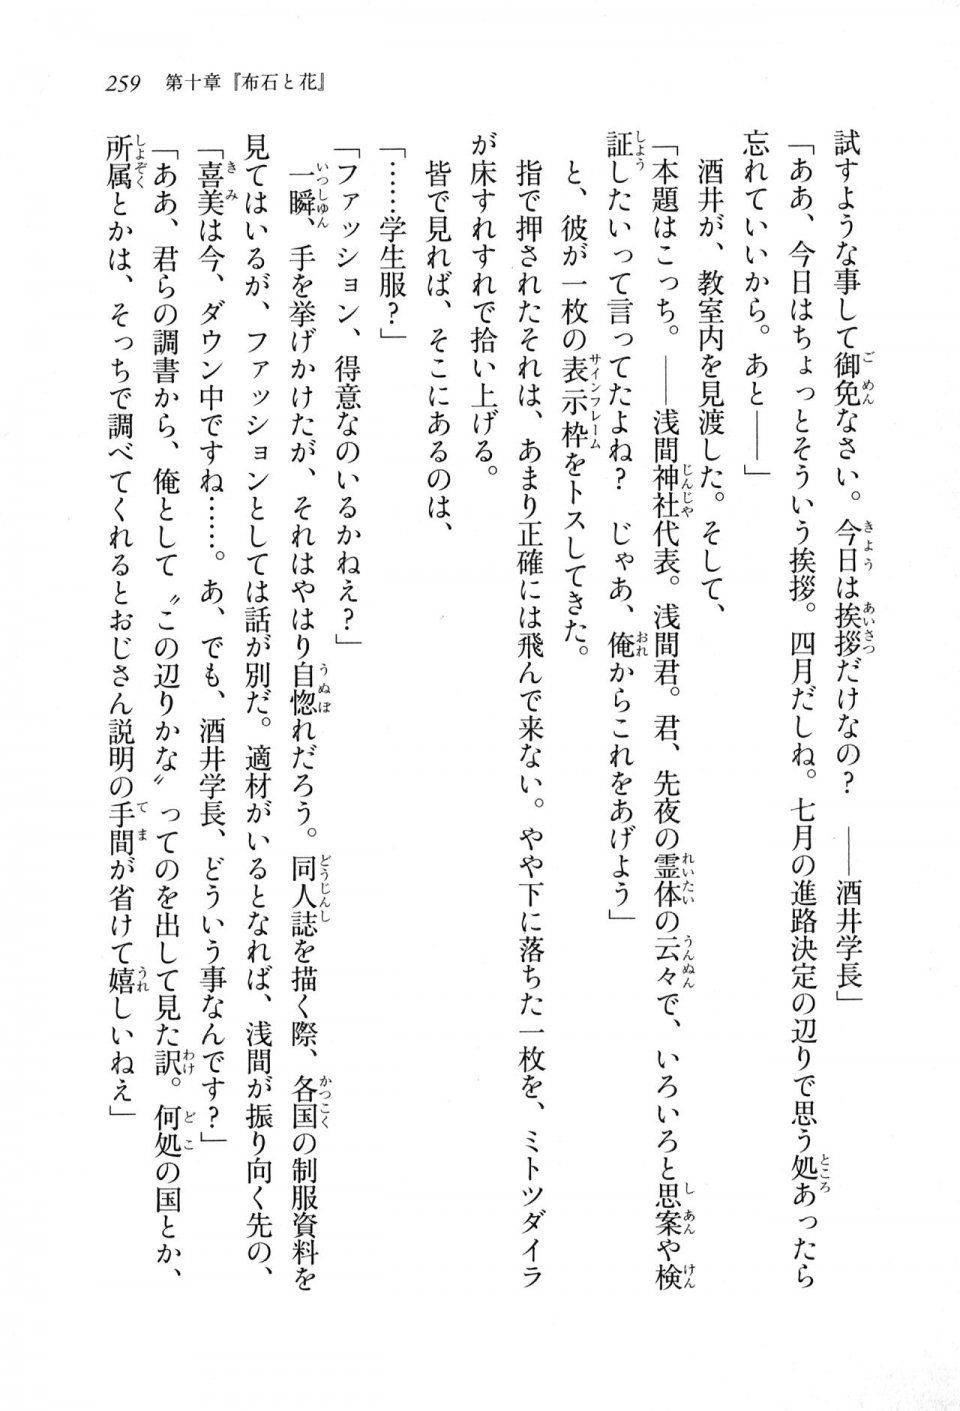 259　第十章『布石と花』
試すような事して御免なさい。今日は挨拶だけなの？　――酒井学長」
「ああ、今日はちょっとそういう挨拶。四月だしね。七月の進路決定の辺りで思う処あったら
忘れていいから。あと――」
酒井が、教室内を見渡した。そして、
「本題はこっち。――浅間神社代表。浅間君。君、先夜の霊体の云々で、いろいろと思案や検
証したいって言ってたよね？　じゃあ、俺からこれをあげよう」
と、彼が一枚の表示枠をトスしてきた。
指で押されたそれは、あまり正確には飛んで来ない。やや下に落ちた一枚を、ミトツダイラ
が床すれすれで拾い上げる。
皆で見れば、そこにあるのは、
「……学生服？」
「ファッション、得意なのいるかねえ？」
一瞬、手を挙げかけたが、それはやはり自惚れだろう。同人誌を描く際、各国の制服資料を
見てはいるが、ファッションとしては話が別だ。適材がいるとなれば、浅間が振り向く先の、
「喜美は今、ダウン中ですね……。あ、でも、酒井学長、どういう事なんです？」
「ああ、君らの調書から、俺として〝この辺りかな〟ってのを出して見た訳。何処の国とか、
所属とかは、そっちで調べてくれるとおじさん説明の手間が省けて嬉しいねえ」